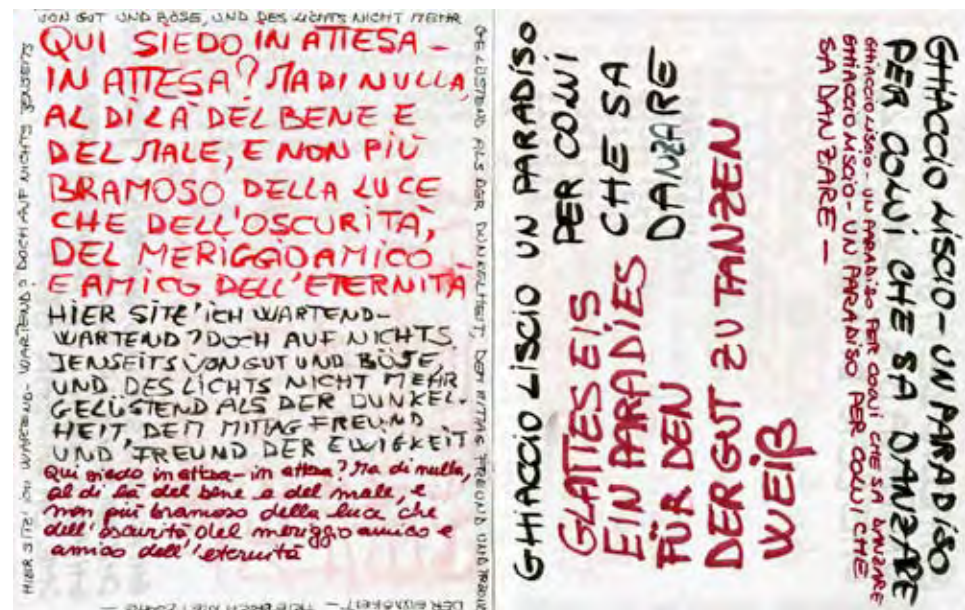 VON GUT UND BÖSE, UND DES LICHTS NICHT MEHR
QUI SIEDO IN ATTESA –
IN ATTESA? MA DI NULLA,
AL DI LÀ DEL BENE E
DEL MALE, E NON PIÙ
BRAMOSO DELLA LUCE
CHE DELL'OSCURITÀ,
DEL MERIGGIO AMICO
E AMICO DELL'ETERNITÀ
HIER SITZ' ICH WARTEND–
WARTEND? DOCH AUF NICHTS,
JENSEITS VON GUT UND BÖSE,
UND DES LICHTS NICHT MEHR
GELÜSTEND ALS DER DUNKEL-
HEIT, DEM MITTAG FREUND
UND FREUND DER EWIGKEIT
Qui siedo in attesa – in attesa? Ma di nulla,
al di là del bene e del male, e
non più bramoso della luce che
dell'oscurità del meriggio amico e
amico dell'eternità
GELÜSTEND ALS DER DUNKELHEIT, DEM MITTAG FREUND UND FREUND
DER EWIGKEIT –
HIER SITZ' ICH WARTEND – WARTEND? DOCH AUF NICHTS JENSEITS
GHIACCIO LISCIO UN PARADISO
PER COLUI
CHE SA
DANZARE
GLATTES EIS
EIN PARADIES
FÜR DEN
DER GUT ZU TANZEN
WEIß
GHIACCIO LISCIO – UN PARADISO
PER COLUI CHE SA DANZARE
GHIACCIO LISCIO – UN PARADISO PER COLUI CHE SA DANZARE
GHIACCIO LISCIO – UN PARADISO PER COLUI CHE
SA DANZARE –